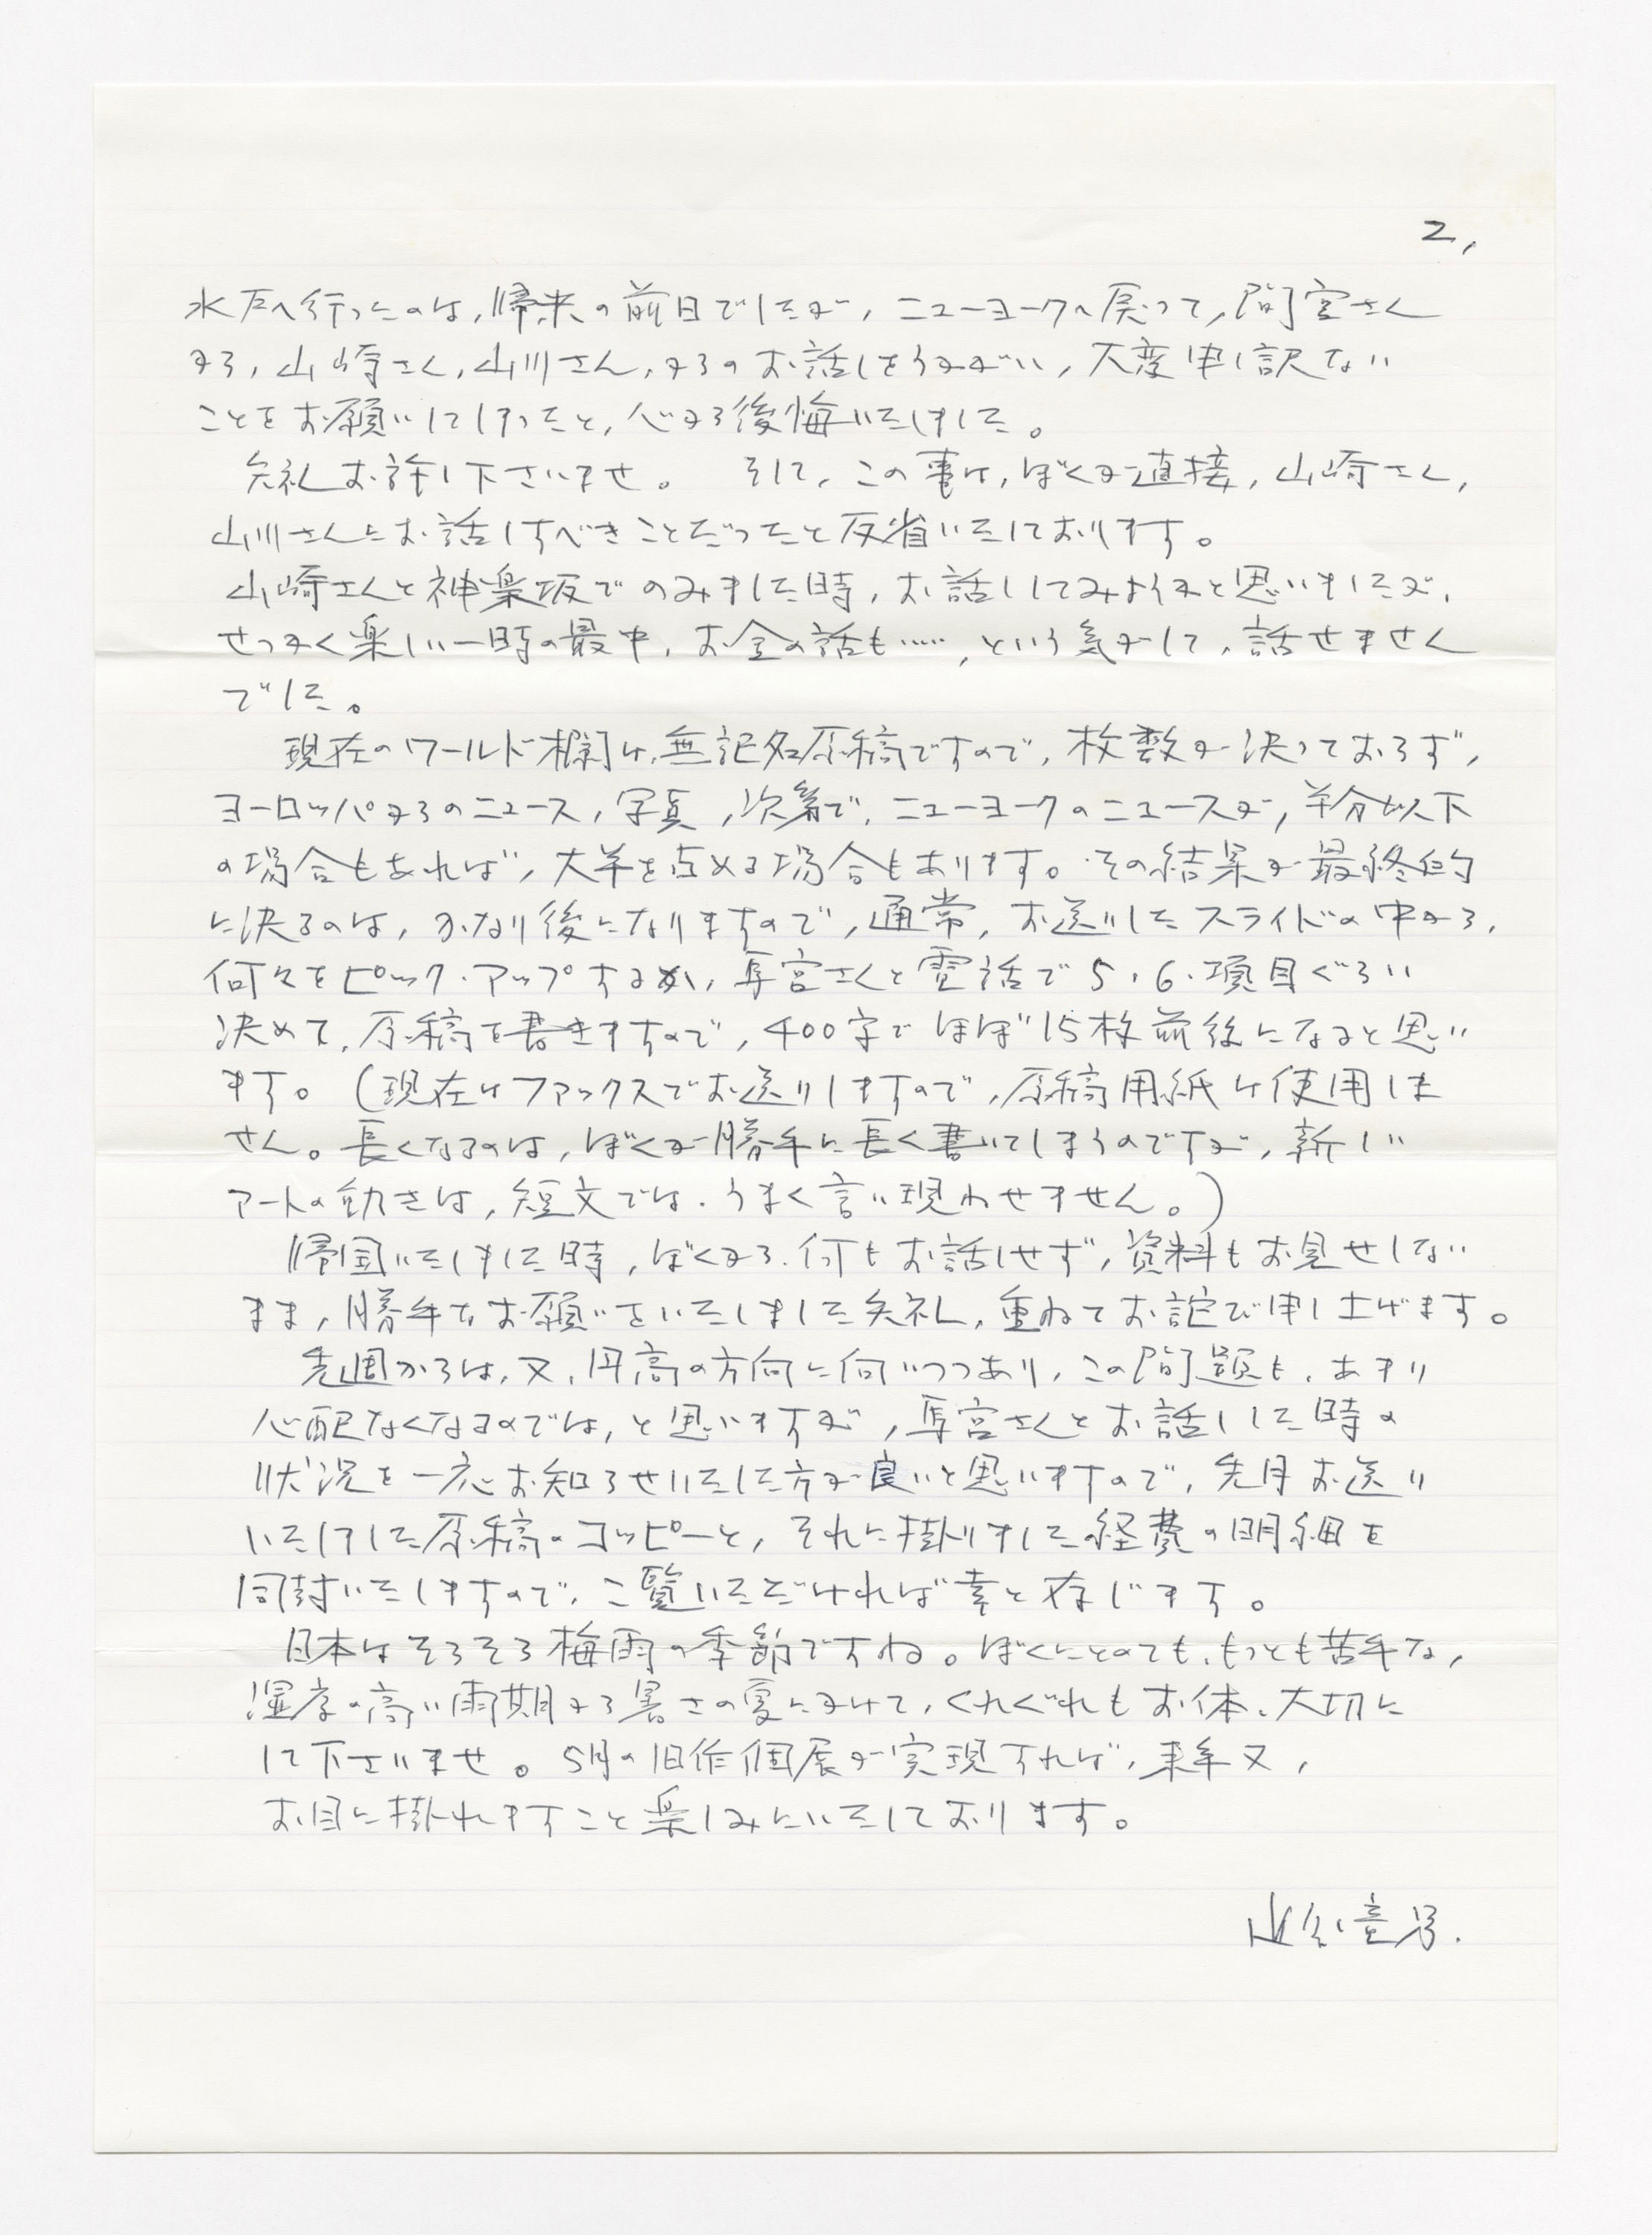 2,
水戸へ行ったのは,帰米の前日でしたが,ニューヨークへ戻って,間宮さん
から,山崎さん,山川さん,からのお話しをうかがい,大変申し訳ない
ことをお願いしてしまったと,心から後悔いたしました。
失礼お許し下さいませ。 そして,この事は,ぼくが直接,山崎さん,
山川さんにお話しすべきことだったと反省いたしております。
山崎さんと神楽坂でのみました時,お話ししてみようかと思いましたが,
せっかく楽しい一時の最中,お金の話も……,という気がして,話せません
でした。
現在のワールド欄は,無記名原稿ですので,枚数が決っておらず,
ヨーロッパからのニュース,写真,次第で,ニューヨークのニュースが,半分以下
の場合もあれば,大半を占める場合もあります。その結果が最終的
に決るのは,かなり後になりますので,通常,お送りしたスライドの中から,
何々をピック・アップするか,宮さんと電話で5,6,項目ぐらい
決めて,原稿を書きますので,400字でほぼ15枚前後になると思い
ます。(現在はファックスでお送りしますので,原稿用紙は使用しま
せん。長くなるのは,ぼくが勝手に長く書いてしまうのですが,新しい
アートの動きは,短文では,うまく言い現わせません。)
帰国いたしました時,ぼくから,何もお話しせず,資料もお見せしない
まま,勝手なお願いをいたしました失礼,重ねてお詫び申し上げます。
先週からは,又,円高の方向に向いつつあり,この問題も,あまり
心配なくなるのでは,と思いますが,宮さんとお話しした時の
状況を一応お知らせいたした方が良いと思いますので,先月お送り
いたしました原稿のコッピーと,それに掛りました経費の明細を
同封いたしますので,ご覧いただければ幸と存じます。
日本はそろそろ梅雨の季節ですね。ぼくにとっても,もっとも苦手な,
湿度の高い雨期から暑さの夏にかけて,くれぐれもお体,大切に
して下さいませ。5月の旧作個展が実現すれば,来年又,
お目に掛れますこと楽しみにいたしております。